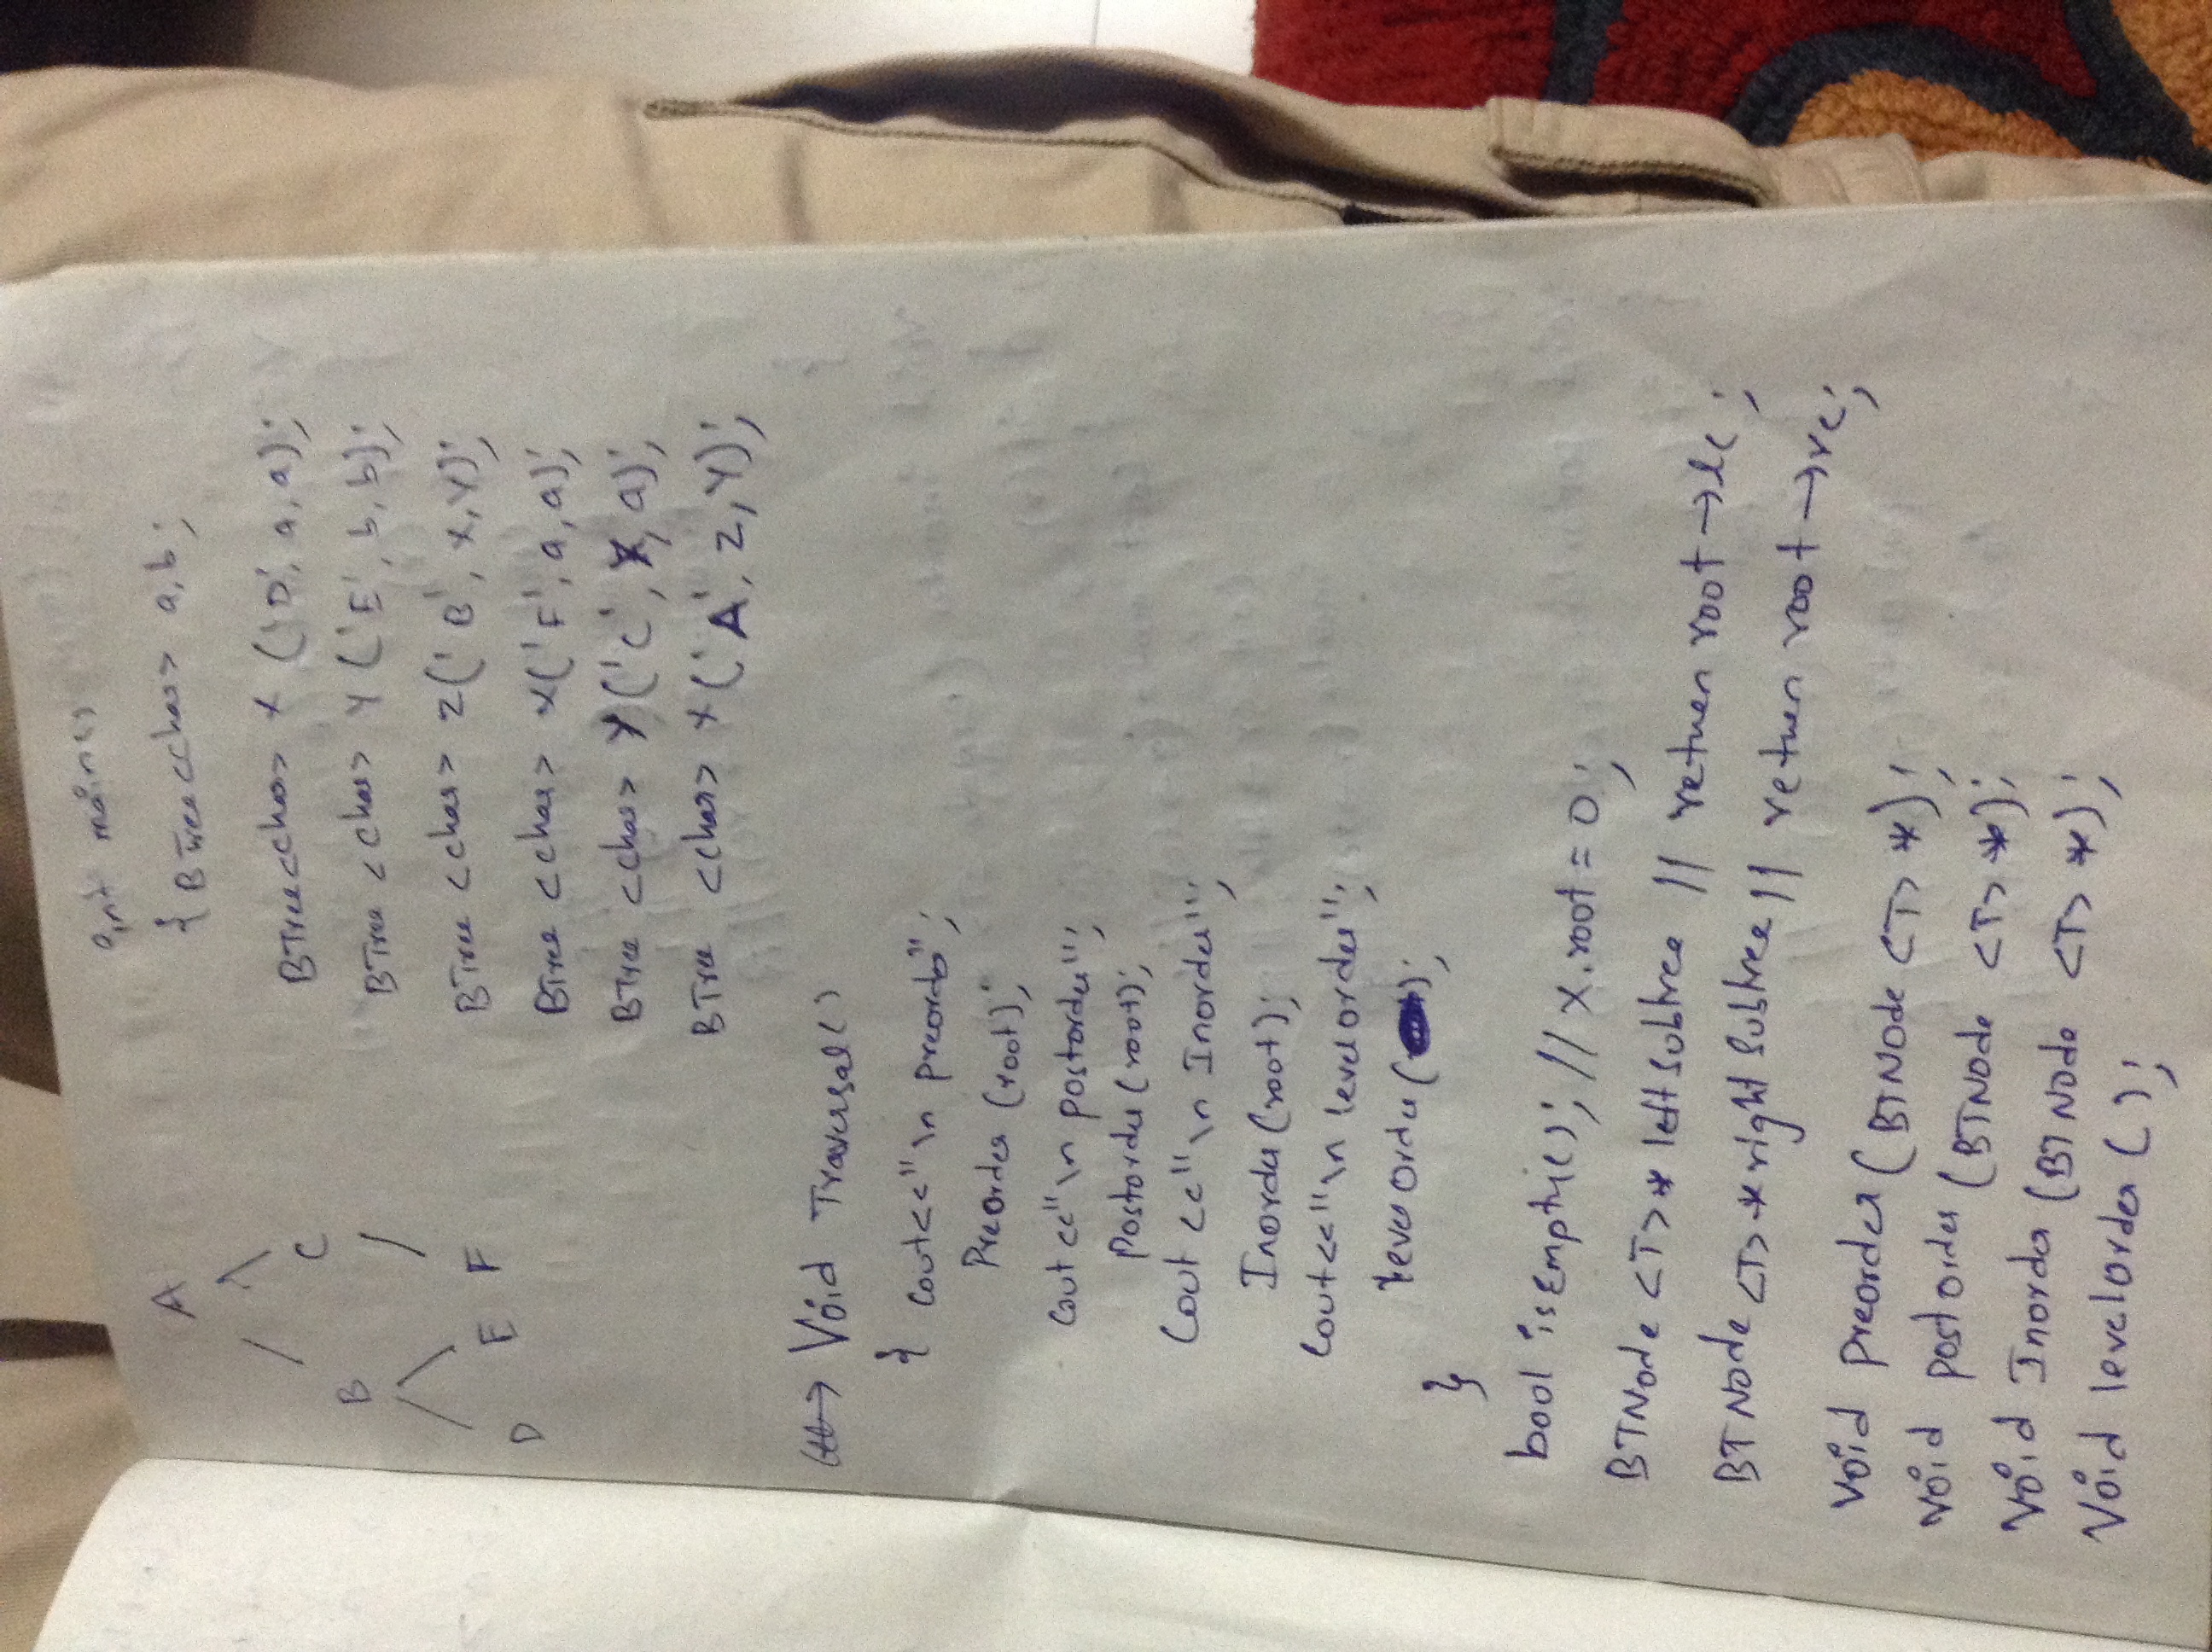 A
B C
D E F
int main()
{ BTree<char> a,b;
BTree<char> X ('D', a, a);
BTree <char> Y ('E', b, b);
BTree <char> Z('B', X,Y);
BTree <char> X('F', a, a);
BTree <char> Y ('C', X, a);
BTree <char> X('A', Z, Y);
Void Traversal()
{ Cout<<"\n preorder";
Preorder (root);
Cout <<"\n postorder";
Postorder (root);
Cout <<"\n Inorder";
Inorder (root);
Cout<<"\n levelorder";
levelOrder ( );
}
bool isEmpty(); // X.root = 0;
BTNode <T>* leftSubtree // return root →lc;
BTNode <T>* rightSubtree // return root →rc;
Void preorder (BTNode <T> *);
Void postorder (BTNode <T> *);
Void Inorder (BTNode <T> *);
Void levelorder ( );